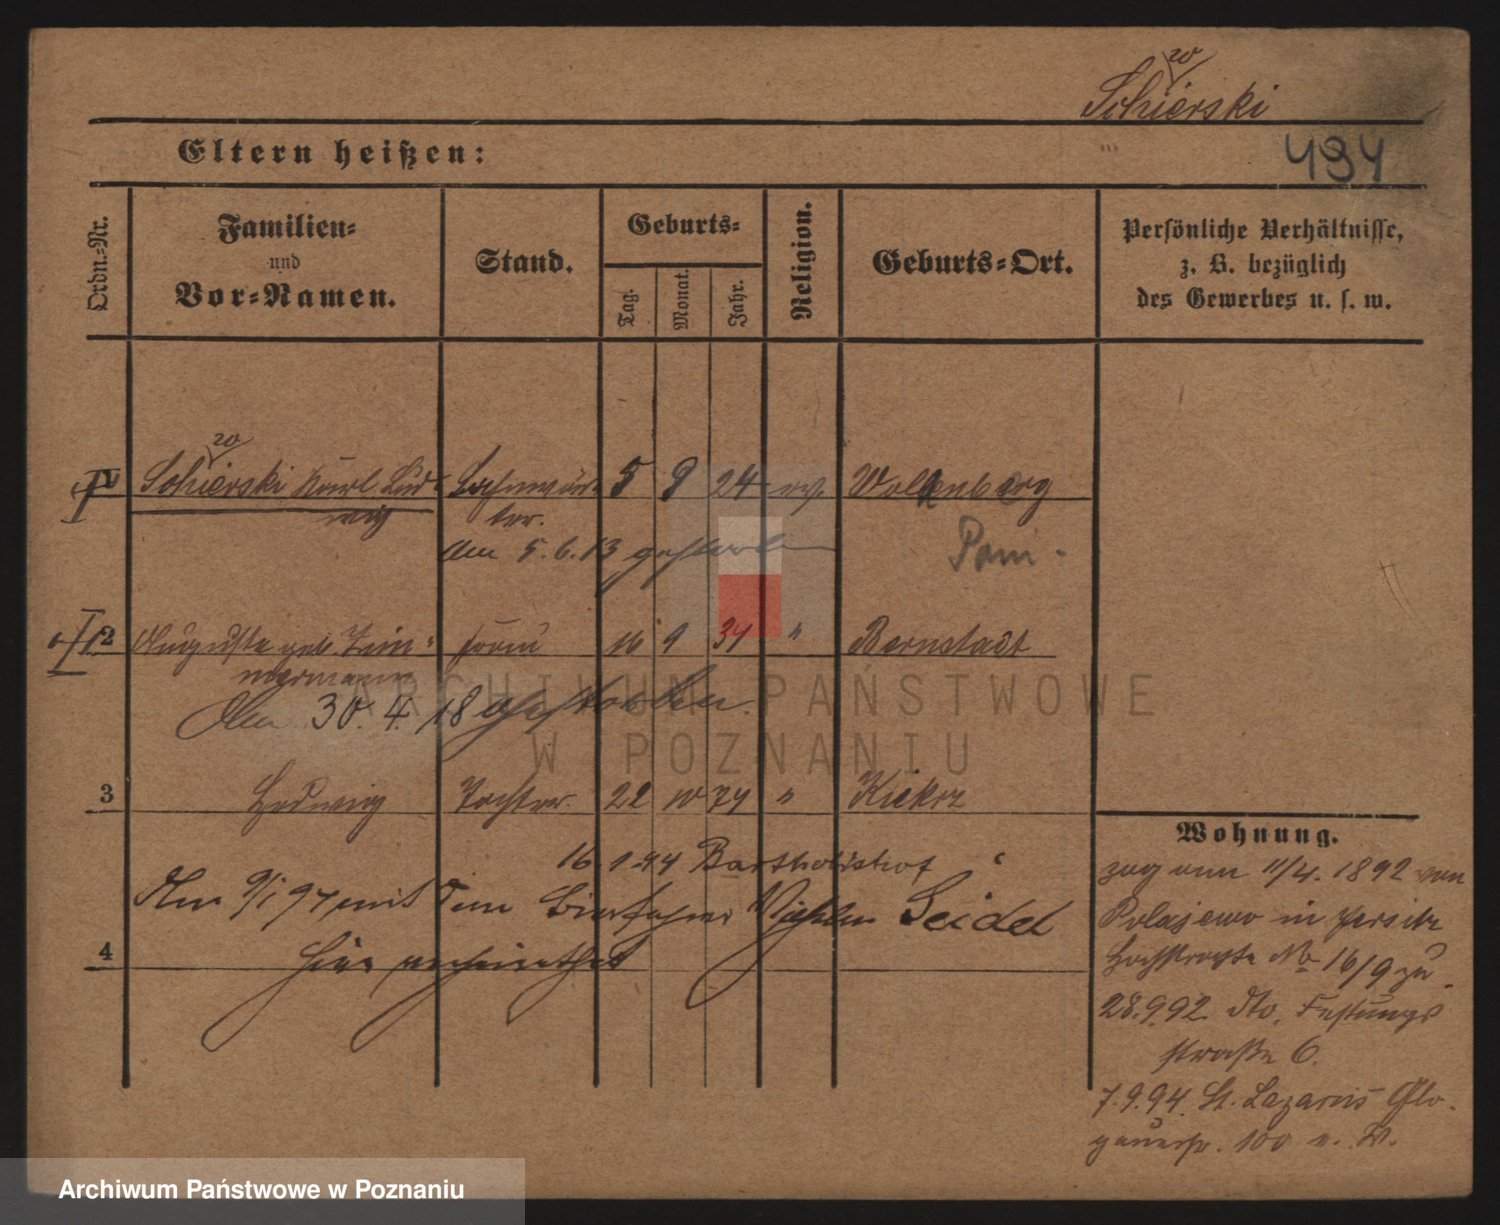 w
Schierski
494
Eltern heißen:
Ordn.-Nr.
Familien-
und
Vor-Namen.
Stand.
Geburts-
Tag.
Monat.
Jahr.
Religion.
Geburts-Ort.
Persönliche Verhältnisse,
z. B. bezüglich
des Gewerbes u. s. w.
w
1 Schierski Karl Lud- Bahnwär- 5 9 24 ev. Wollenberg
wig ter.
am 5.6.13 gestorben
Pom.
2 Auguste geb. Zim- Frau 16 9 34 " Bernstadt
mermann
Am 30.4.18 gestorben.
3 Hedwig Tochter 22 10 74 " Kiekrz
16 1 44 Bartholdshof
Am 9/1 97 mit dem Bierfahrer Seidel
hier verheirathet
4
Wohnung.
zog am 11/4. 1892 von
Polajewo in Jersitz
Hochstraße No 16/9 zu
28.9.92. dto. Festungs
straße 6.
7.9.94. St. Lazarus Glo-
gauerstr. 100 n. W.
ARCHIWUM PAŃSTWOWE
W POZNANIU
Archiwum Państwowe w Poznaniu